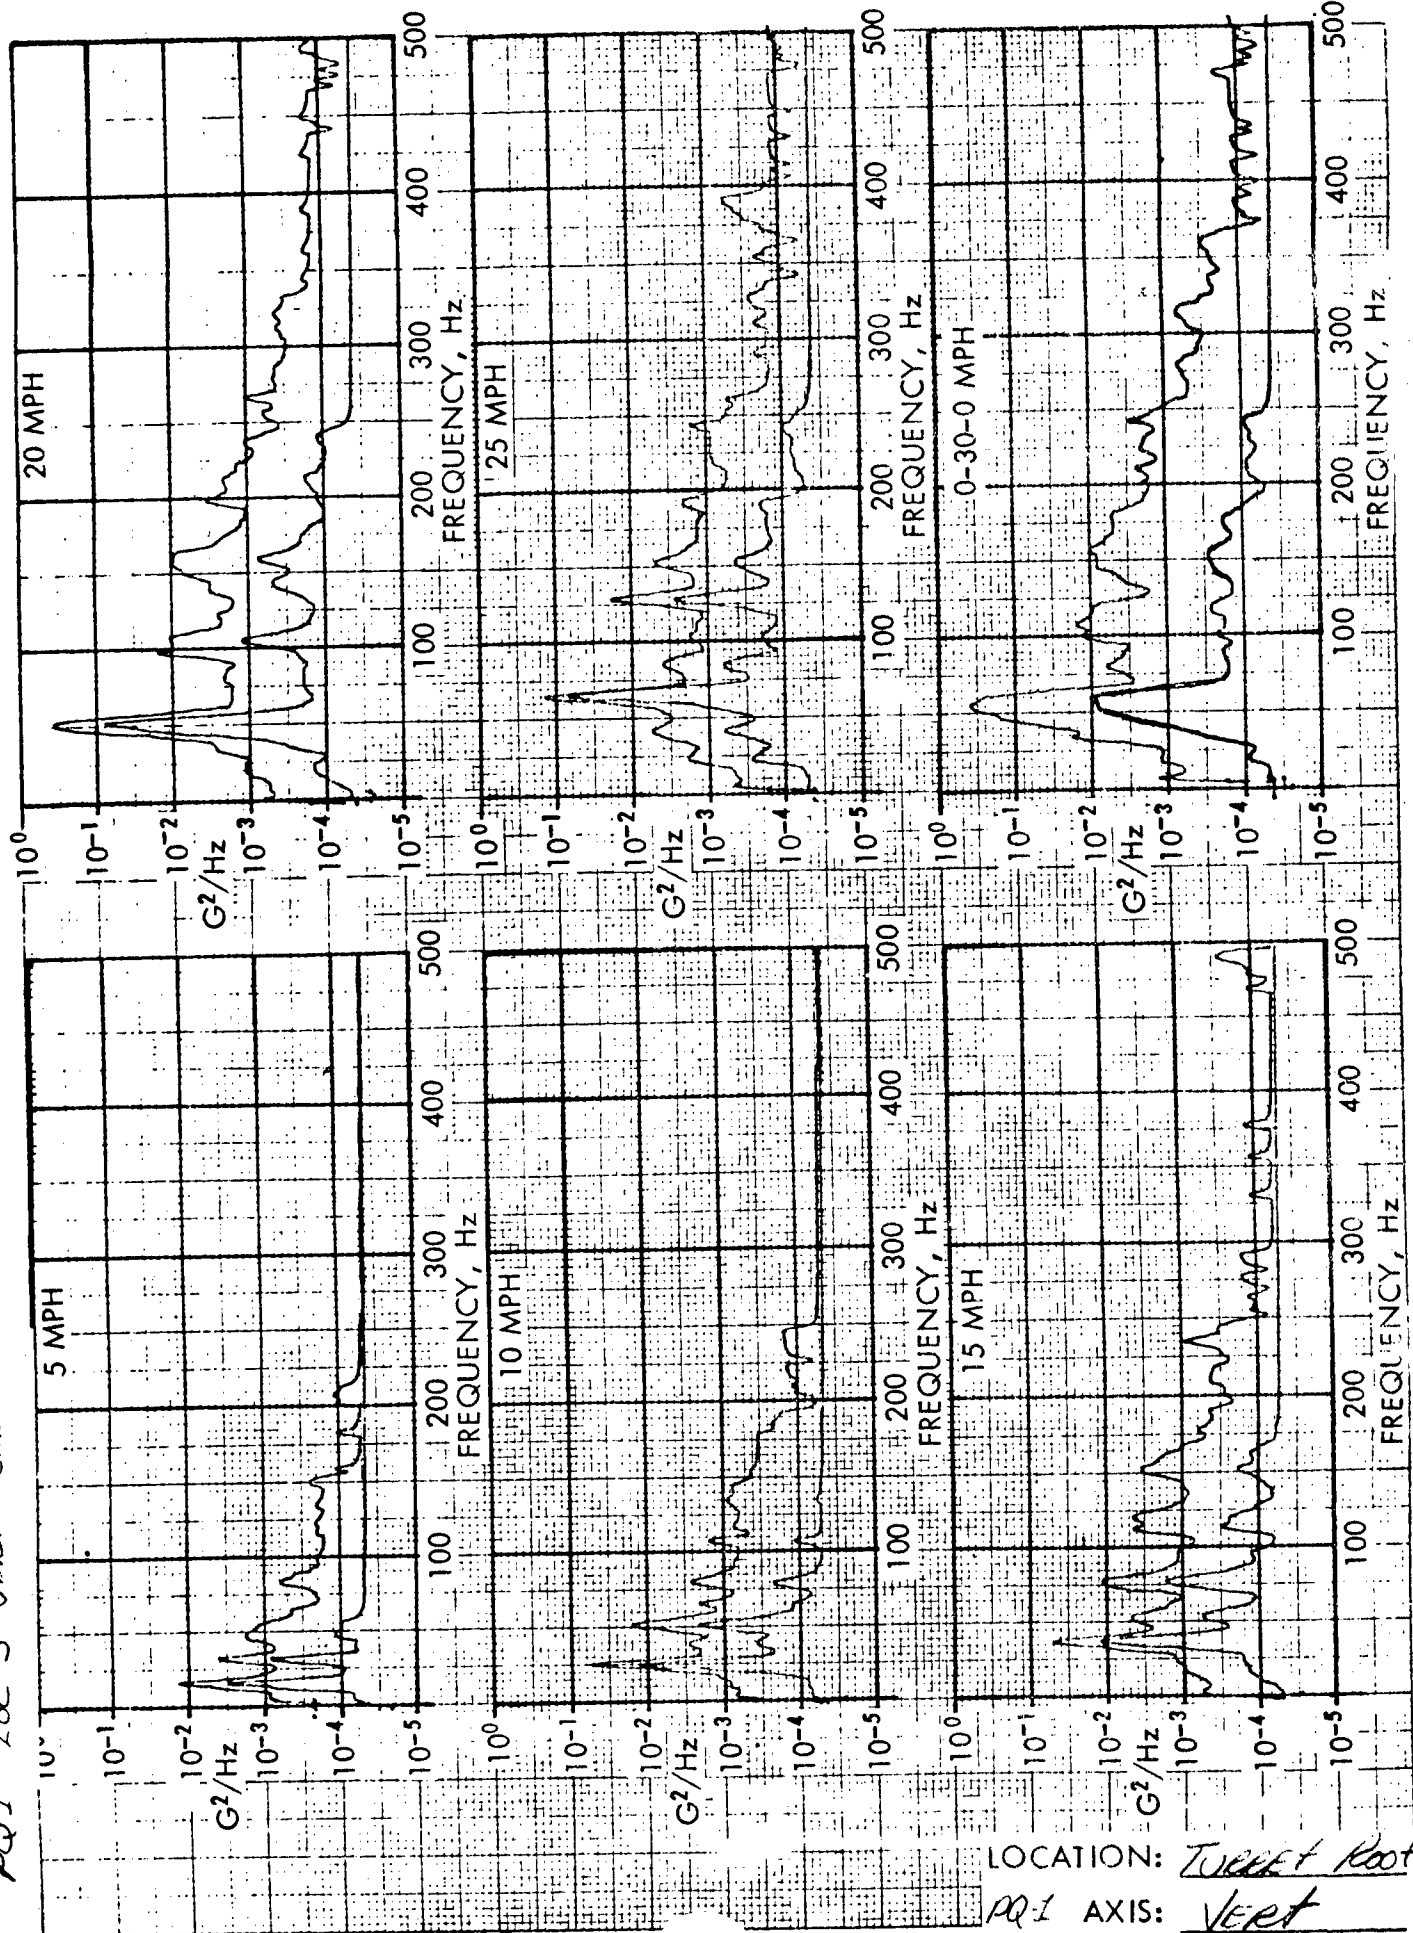 PQ1
5 MPH
10⁻¹
10⁻²
G²/Hz
10⁻³
10⁻⁴
10⁻⁵
100
200
300
400
500
FREQUENCY, Hz
20 MPH
10⁰
10⁻¹
10⁻²
G²/Hz
10⁻³
10⁻⁴
10⁻⁵
100
200
300
400
500
FREQUENCY, Hz
10 MPH
10⁰
10⁻¹
10⁻²
G²/Hz
10⁻³
10⁻⁴
10⁻⁵
100
200
300
400
500
FREQUENCY, Hz
25 MPH
10⁰
10⁻¹
10⁻²
G²/Hz
10⁻³
10⁻⁴
10⁻⁵
100
200
300
400
500
FREQUENCY, Hz
15 MPH
10⁰
10⁻¹
10⁻²
G²/Hz
10⁻³
10⁻⁴
10⁻⁵
100
200
300
400
500
FREQUENCY, Hz
0-30-0 MPH
10⁰
10⁻¹
10⁻²
G²/Hz
10⁻³
10⁻⁴
10⁻⁵
100
200
300
400
500
FREQUENCY, Hz
LOCATION: Turret Roof
PQ-1 AXIS: Vert